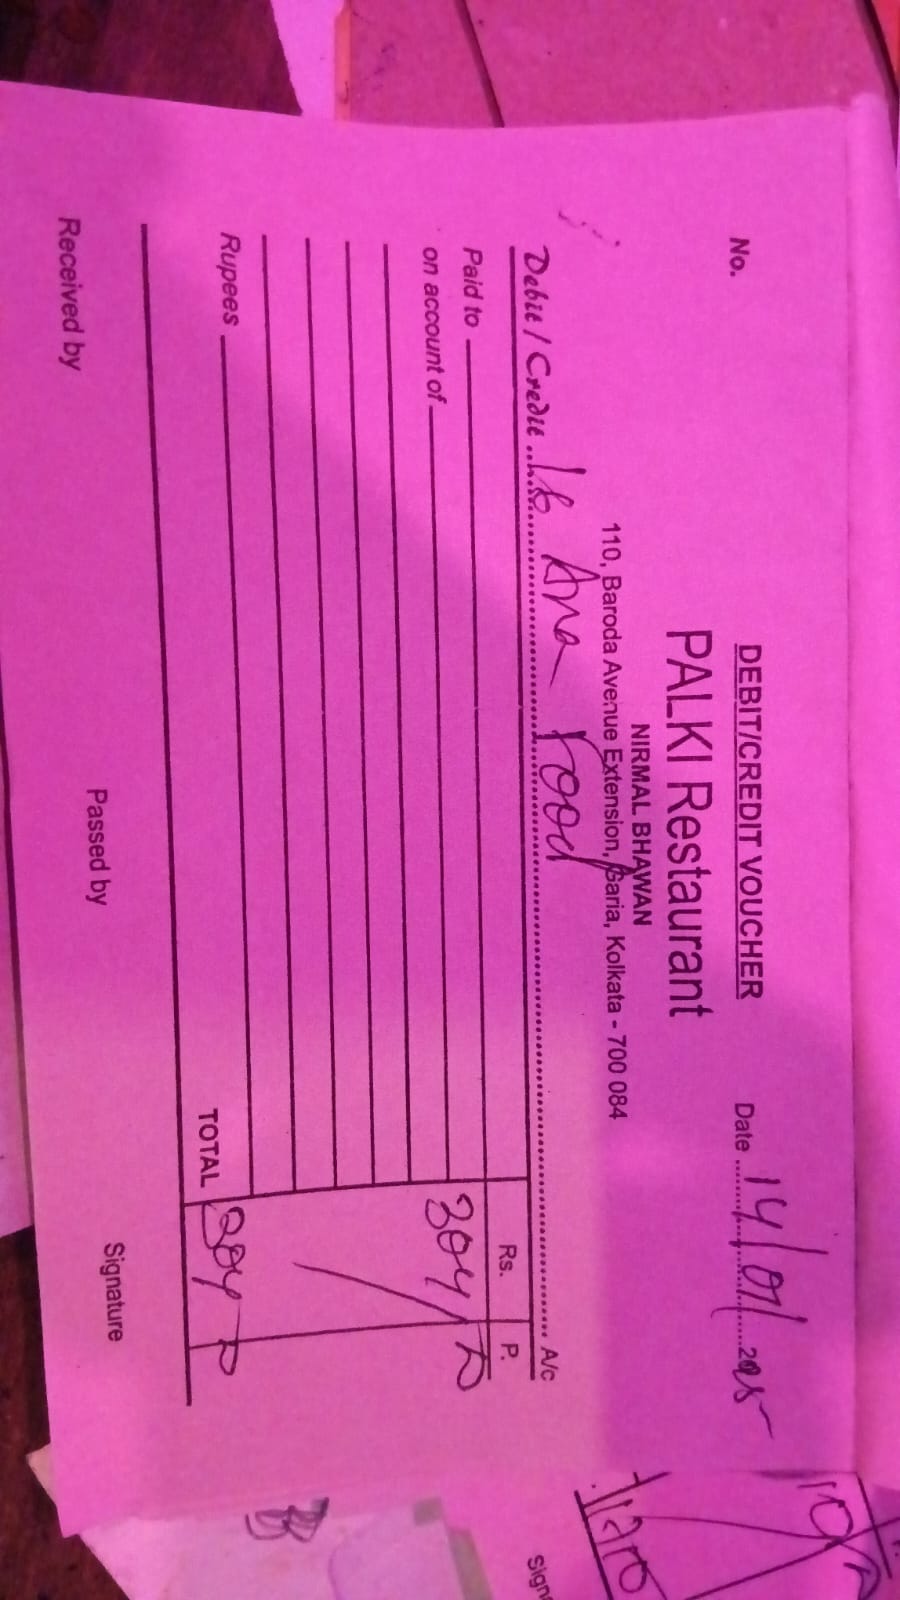 DEBIT/CREDIT VOUCHER
No. Date 14/01/2025
PALKI Restaurant
NIRMAL BHAWAN
110, Baroda Avenue Extension, Garia, Kolkata - 700 084
Debit / Credit 16 Ana Food A/c
Rs. P.
Paid to
on account of
Rupees
TOTAL
Received by Passed by Signature
Sign